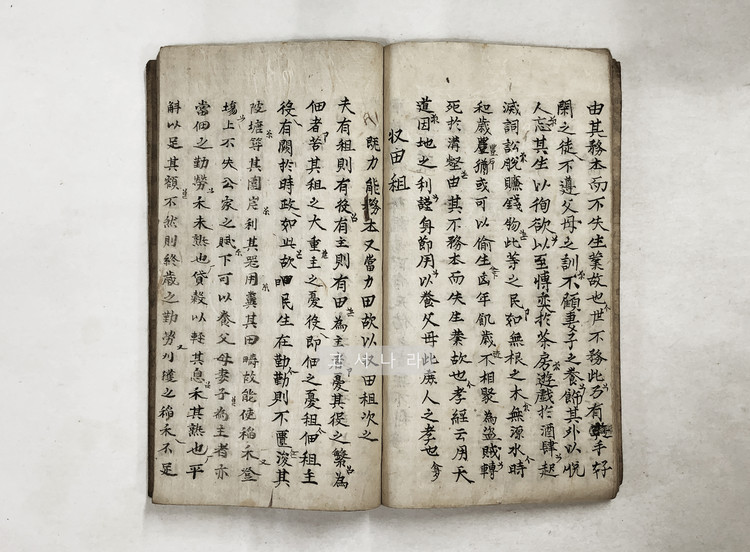 由其務本而不失生業故也世不務此乃有手好
閑之徒不遵父母之訓不顧妻子之養飾其外以悅
人忘其生以徇欲以至博奕於茶房遊戲於酒肆起
滅詞訟脫賺錢物此等之民如無根之木無源水時
和歲豊猶或可以偷生凶年飢歲不相聚為盜賊轉
死於溝壑由其不務本而失生業故也孝經云用天
道因地之利謹身節用以養父母此庶人之孝也
収田租
既力能務本又當力田故以収田租次之
夫有租則有役有主則有田為主者憂其役之繁為
佃者苦其租之大重主之憂役即佃之憂租佃租主
役有關於時政如此故民生在勤勤則不匱浚其
陂塘葺其園岸利其器用糞其田疇故能使稲禾登
塲上不失公家之賦下可以養父母妻子為主者亦
當佃之勤勞禾未熟也貸穀以輕其息禾其熟也平
斛以足其額不然則終歲之勤勞刈獲之稲禾不足
고서나라